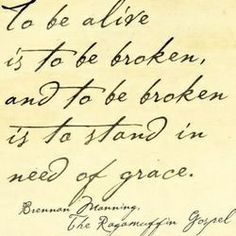 To be alive
is to be broken,
and to be broken
is to stand in
need of grace.
Brennan Manning,
The Ragamuffin Gospel